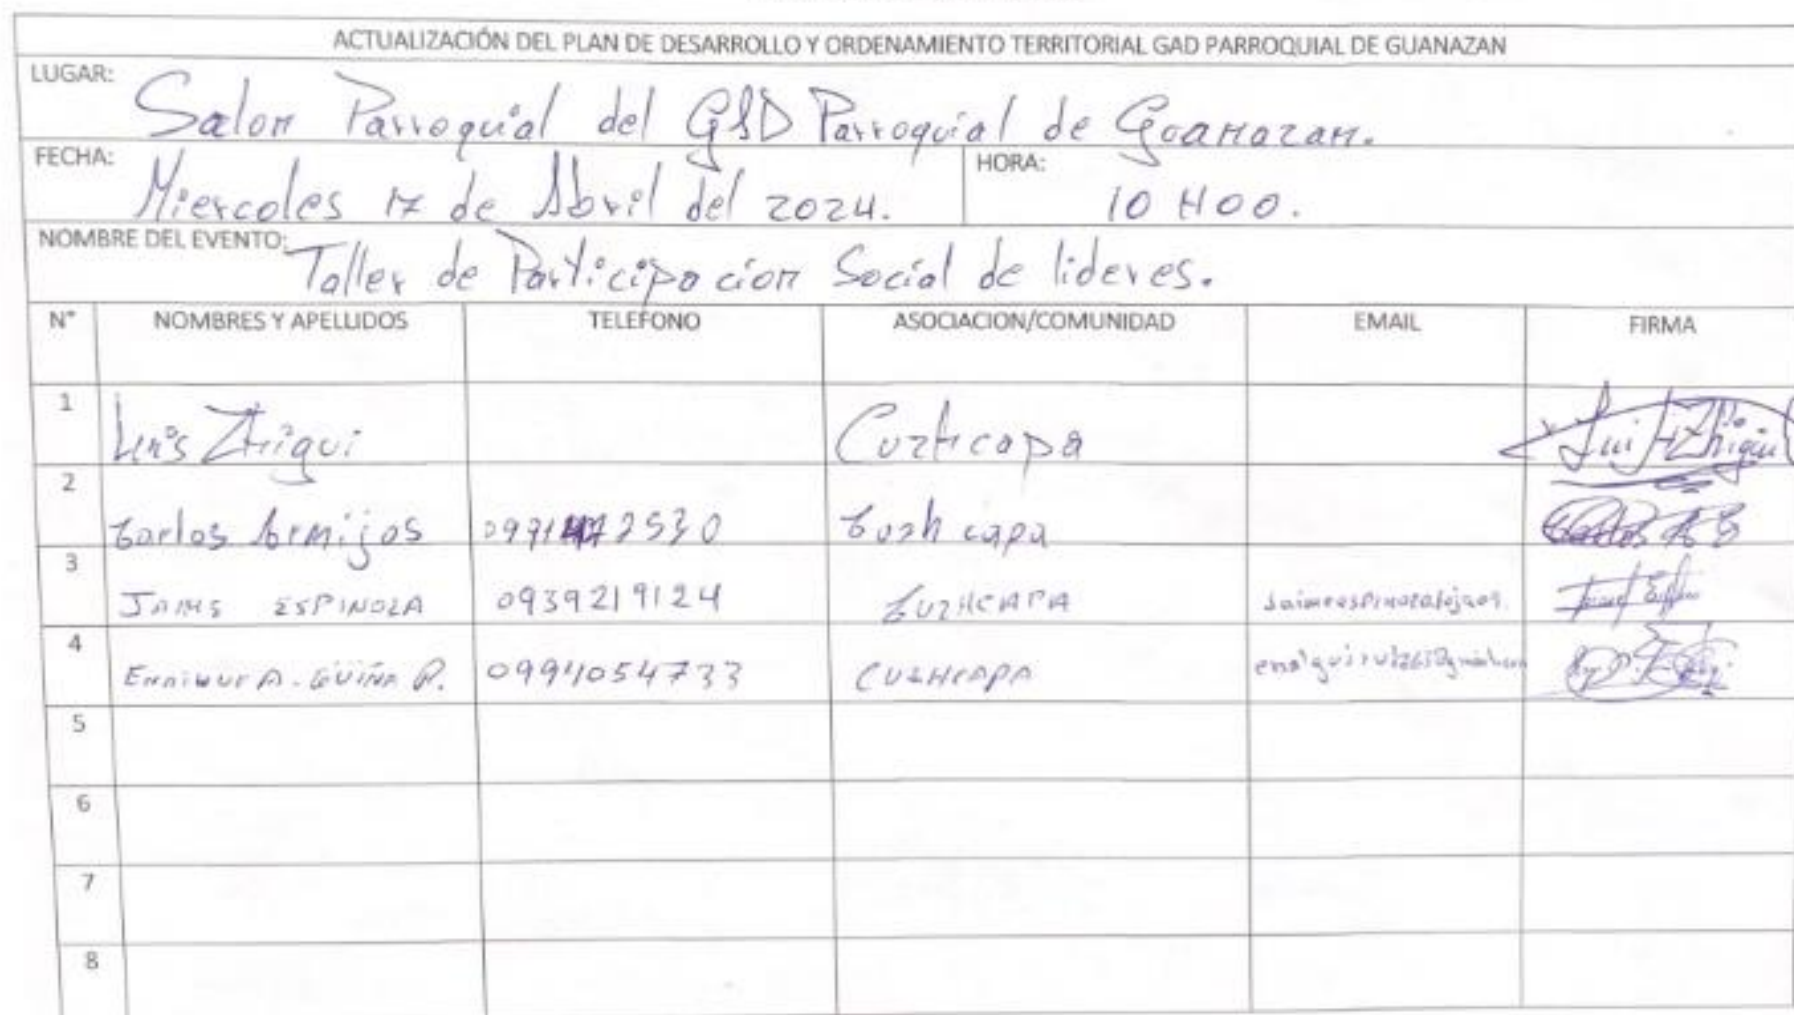 ACTUALIZACIÓN DEL PLAN DE DESARROLLO Y ORDENAMIENTO TERRITORIAL GAD PARROQUIAL DE GUANAZAN
LUGAR: Salon Parroquial del GAD Parroquial de Guanazan.
FECHA: Miercoles 17 de Abril del 2024. HORA: 10 H00.
NOMBRE DEL EVENTO: Taller de Participacion Social de lideres.
N° NOMBRES Y APELLIDOS TELEFONO ASOCIACION/COMUNIDAD EMAIL FIRMA
1 Luis Zhigui Cuzhcapa Luis H Zhigui
2 Carlos Armijos Cuzhcapa
3 JAIME ESPINOZA 0939219124 CUZHCAPA
4 0994054733 CUZHCAPA
5
6
7
8